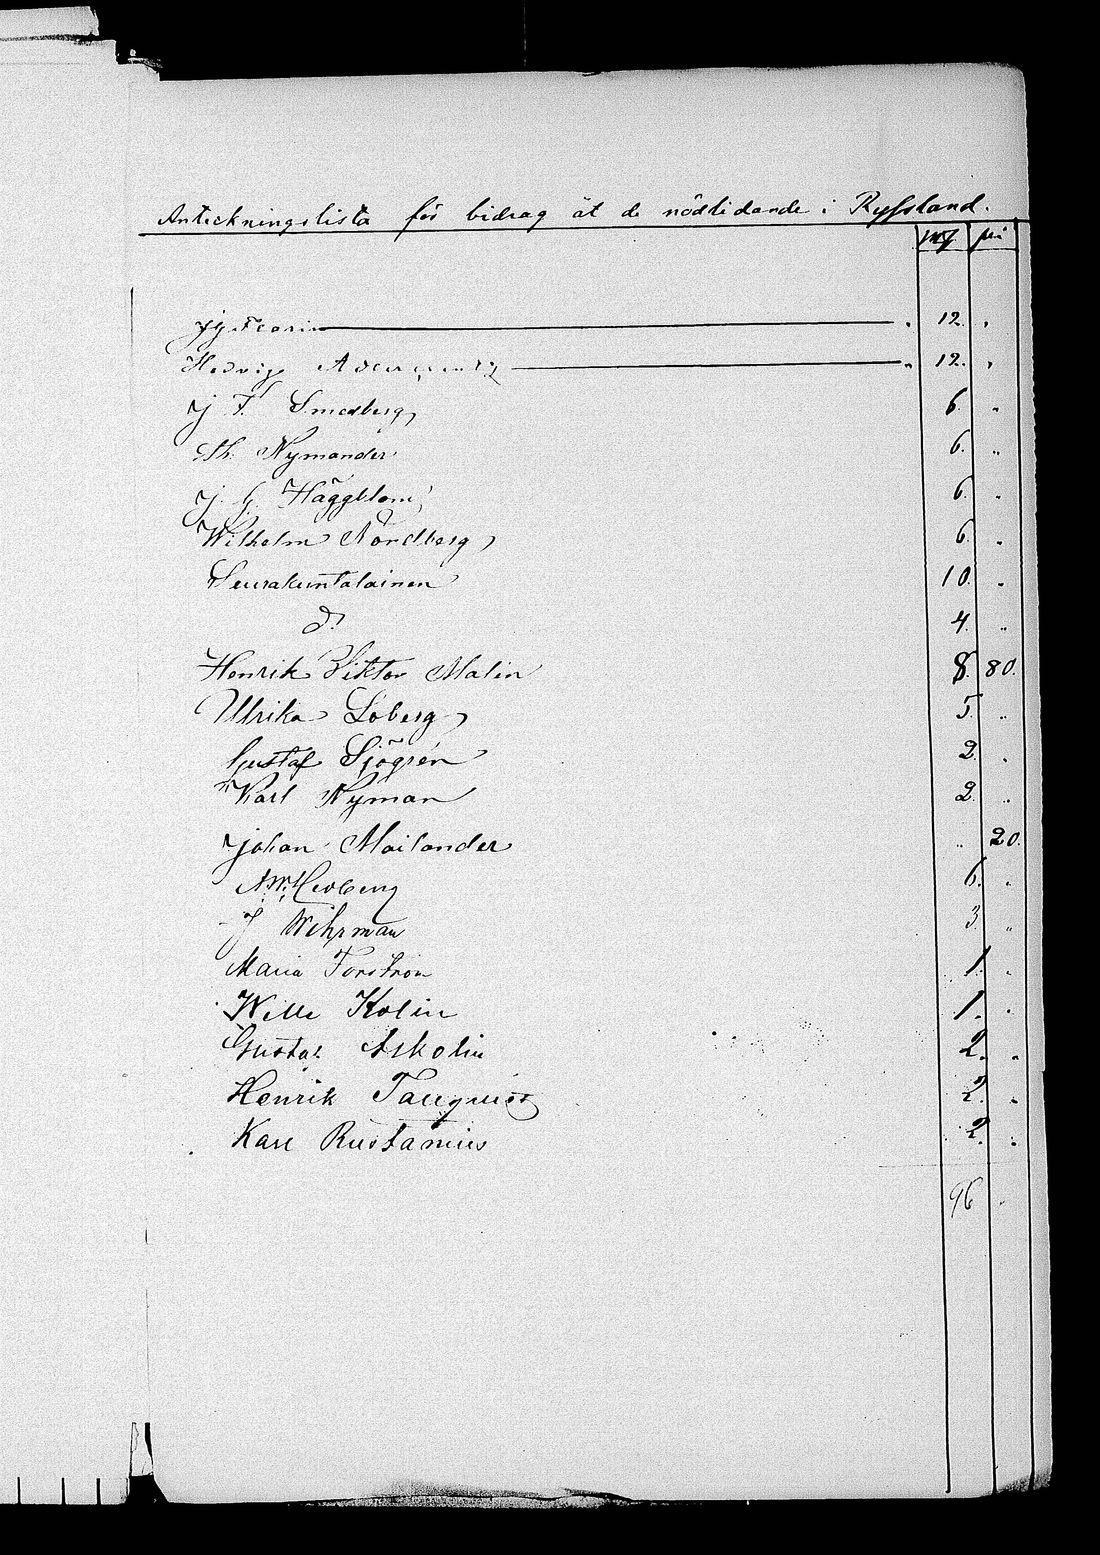 Anteckningslista för bidrag åt de nödlidande i Ryssland.
Mf. pi
12. "
Hedvig 12. "
J F. Smedberg 6. "
Th. Nymander 6. "
J. G. Häggblom 6. "
Wilhelm Nordberg 6. "
Seurakuntalainen 10. "
d. 4. "
Henrik Viktor Malin 8. 80.
Ulrika Söberg 5. "
Gustaf Sjögren 2. "
Karl Nyman 2. "
Johan Mailander " 20.
6. "
J Wihrman 3. "
Maria Forström 1. "
Wille Kolin 1. "
Gustaf Askolin 2. "
Henrik 2. "
Karl Rustanius 2. "
96 "